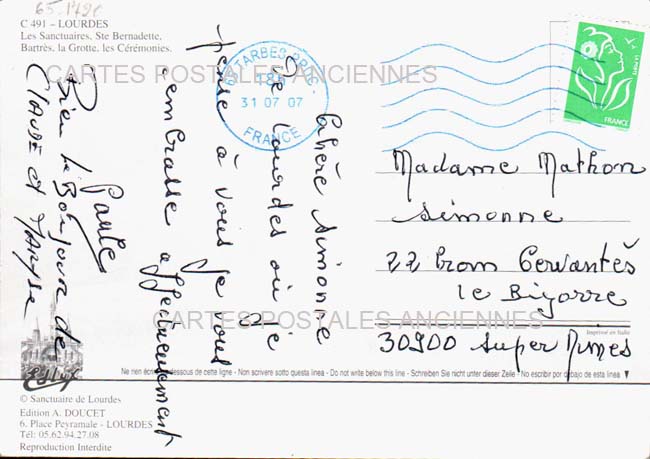 65-1420
C 491 - LOURDES
Les Sanctuaires, Ste Bernadette,
Bartrès, la Grotte, les Cérémonies.
CARTES POSTALES ANCIENNES
TARBES
18H
31 07 07
FRANCE
LA POSTE
FRANCE
chère Simonne
De Lourdes où je
pense à vous Je vous
embrasse affectueusement
Paule
Bien le Bonjour de
CLAUDE et MARYSE
Madame Mathon
Simonne
22 Cervantès
le Bigorre
30900 Super Nimes
CARTES POSTALES ANCIENNES
Imprimé en Italie
Ne rien écrire dessous de cette ligne - Non scrivere sotto questa linea - Do not write below this line - Schreiben Sie nicht unter dieser Zeile - No escribir por debajo de esta linea
© Sanctuaire de Lourdes
Edition A. DOUCET
6. Place Peyramale - LOURDES
Tél: 05.62.94.27.08
Reproduction Interdite